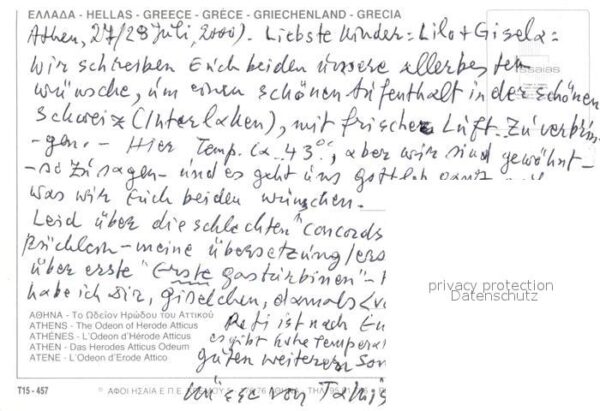 ΕΛΛΑΔΑ - HELLAS - GREECE - GRÈCE - GRIECHENLAND - GRECIA
Athen, 27/28 Juli, 2000). Liebste Kinder: Lilo + Gisela =
Wir schreiben Euch beiden unsere allerbesten
wünsche, um einen schönen Aufenthalt in der schönen
Schweiz (Interlaken), mit frischer Luft zu verbrin-
-gen. - Hier Temp. ca. 43°C, aber wir sind gewöhnt -
- so zu sagen - und es geht uns Gottlob
was wir Euch beiden wünschen.
Leid über die schlechten "Concords
Büchlein - meine übersetzung/
über erste "Erste gasturbinen" -
habe ich Dir, Giselchen, damals
ΑΘΗΝΑ - Το Ωδείον Ηρώδου του Αττικού
ATHENS - The Odeon of Herode Atticus
ATHÈNES - L'Odeon d'Hérode Atticus
ATHEN - Das Herodes Atticus Odeum
ATENE - L'Odeon d'Erode Attico
ist nach
es gibt hohe Tempera
guten weiteren Som
Küsse von
T15 - 457
ΑΦΟΙ ΗΣΑΪΑ Ε.Π.Ε.
privacy protection
Datenschutz